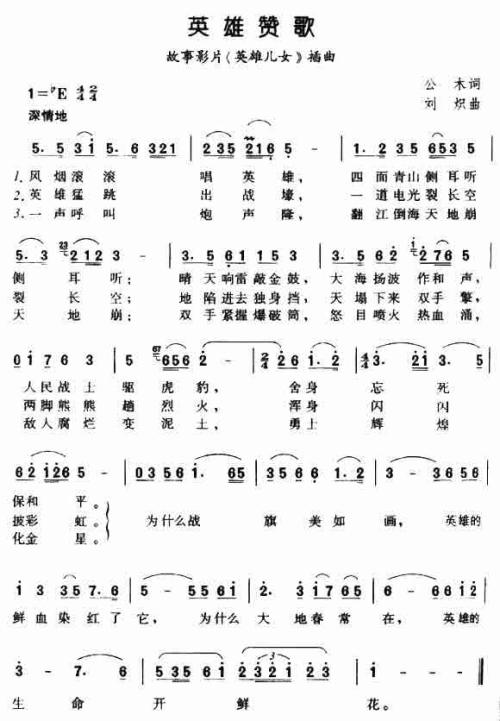 英雄赞歌
故事影片《英雄儿女》插曲
1=♭E 4/4 2/4
公木词
深情地
刘炽曲
5. 5 3 i 5. 6 321 2 35 2 1 6 - 1. 2 3 5 6 5 3 5
1.风烟滚滚 唱英雄, 四面青山侧耳听
2.英雄猛跳 出战壕, 一道电光裂长空
3.一声呼叫 炮声隆, 翻江倒海天地崩
侧耳听; 晴天响雷敲金鼓, 大海扬波作和声,
裂长空; 地陷进去独身挡, 天塌下来双手擎,
天地崩; 双手紧握爆破筒, 怒目喷火热血涌,
人民战士驱虎豹, 舍身忘死
两脚熊熊趟烈火, 浑身闪闪
敌人腐烂变泥土, 勇士辉煌
6 2 i 2 6 5 - 0 3 5 6 1. 6 5 3 5 6 1. 2 3 - 3 5 6
保和平。
披彩虹。 为什么战旗美如画, 英雄的
化金星。
i 3 3 5 7. 6 5 - 5 5 6 i 2. 3 i 7 6 5 6 - 6 6 i 2
鲜血染红了它, 为什么大地春常在, 英雄的
3. 5 7. 6 5 - 5 3 5 6 i 2 3 2 i 2 3 i - - -
生命开鲜花。